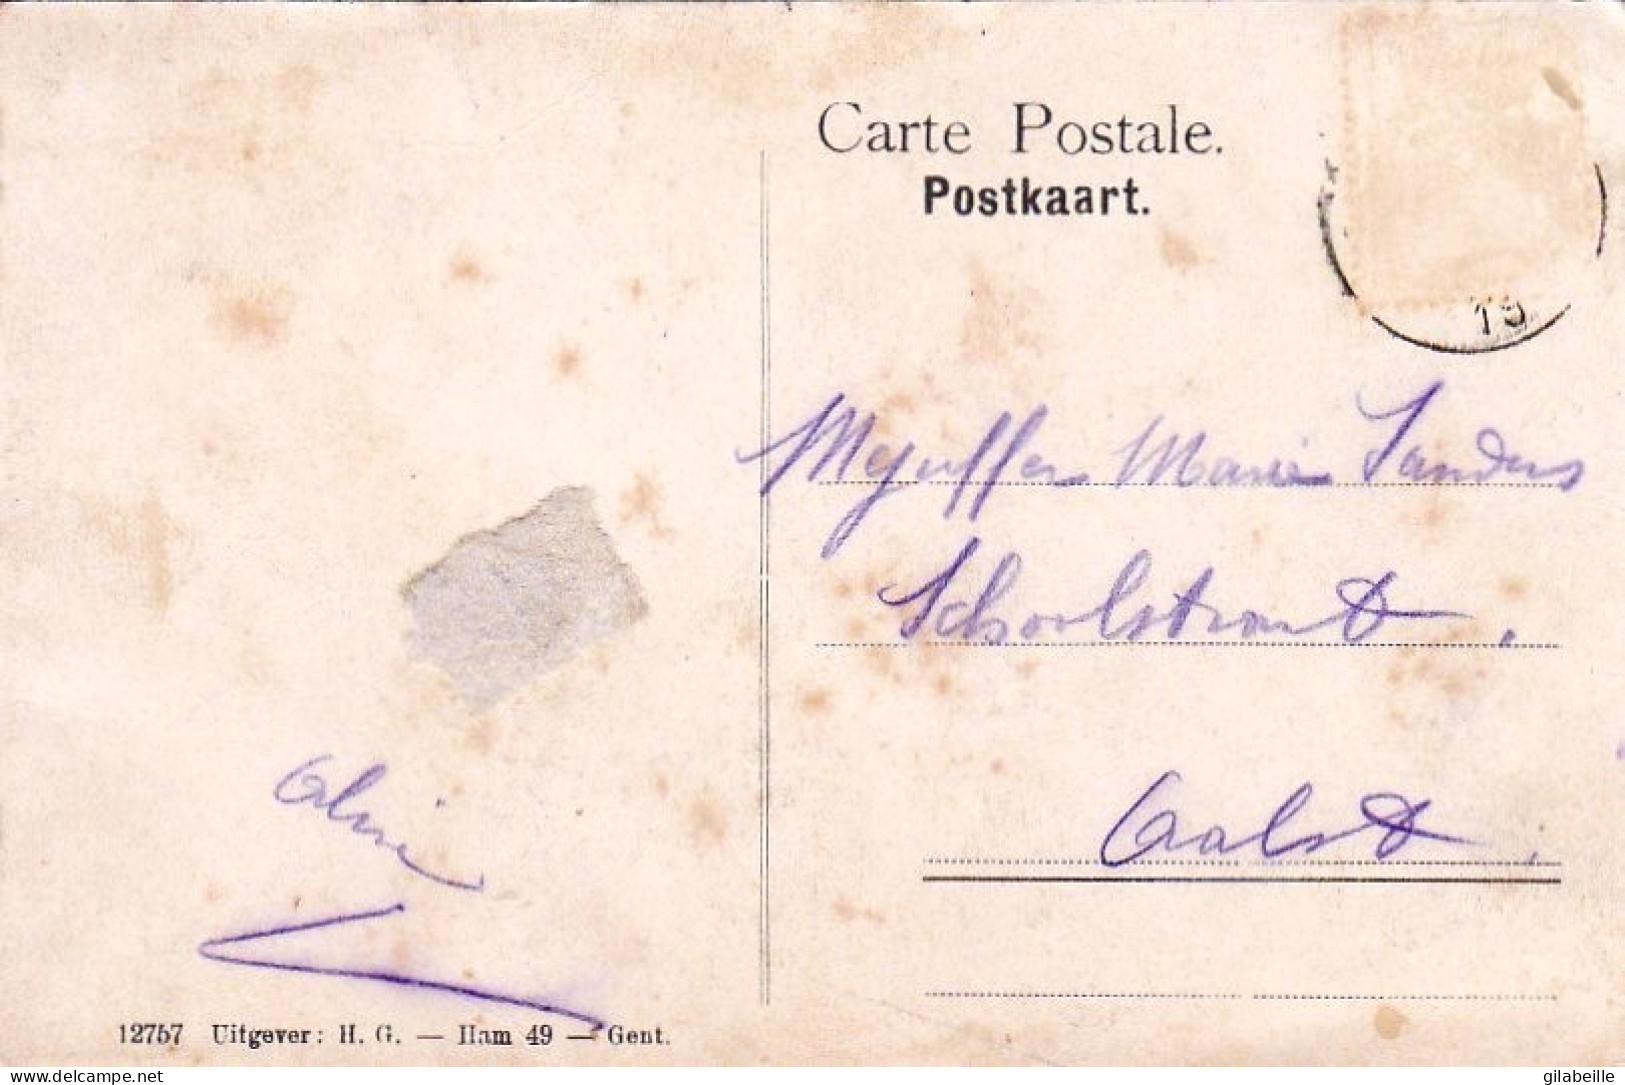 Carte Postale.
Postkaart.
19
Mejuffer Marie Sanders
Schoolstraat.
Aalst.
Aline
12757 Uitgever: H. G. — Ham 49 — Gent.
www.delcampe.net
gilabeille